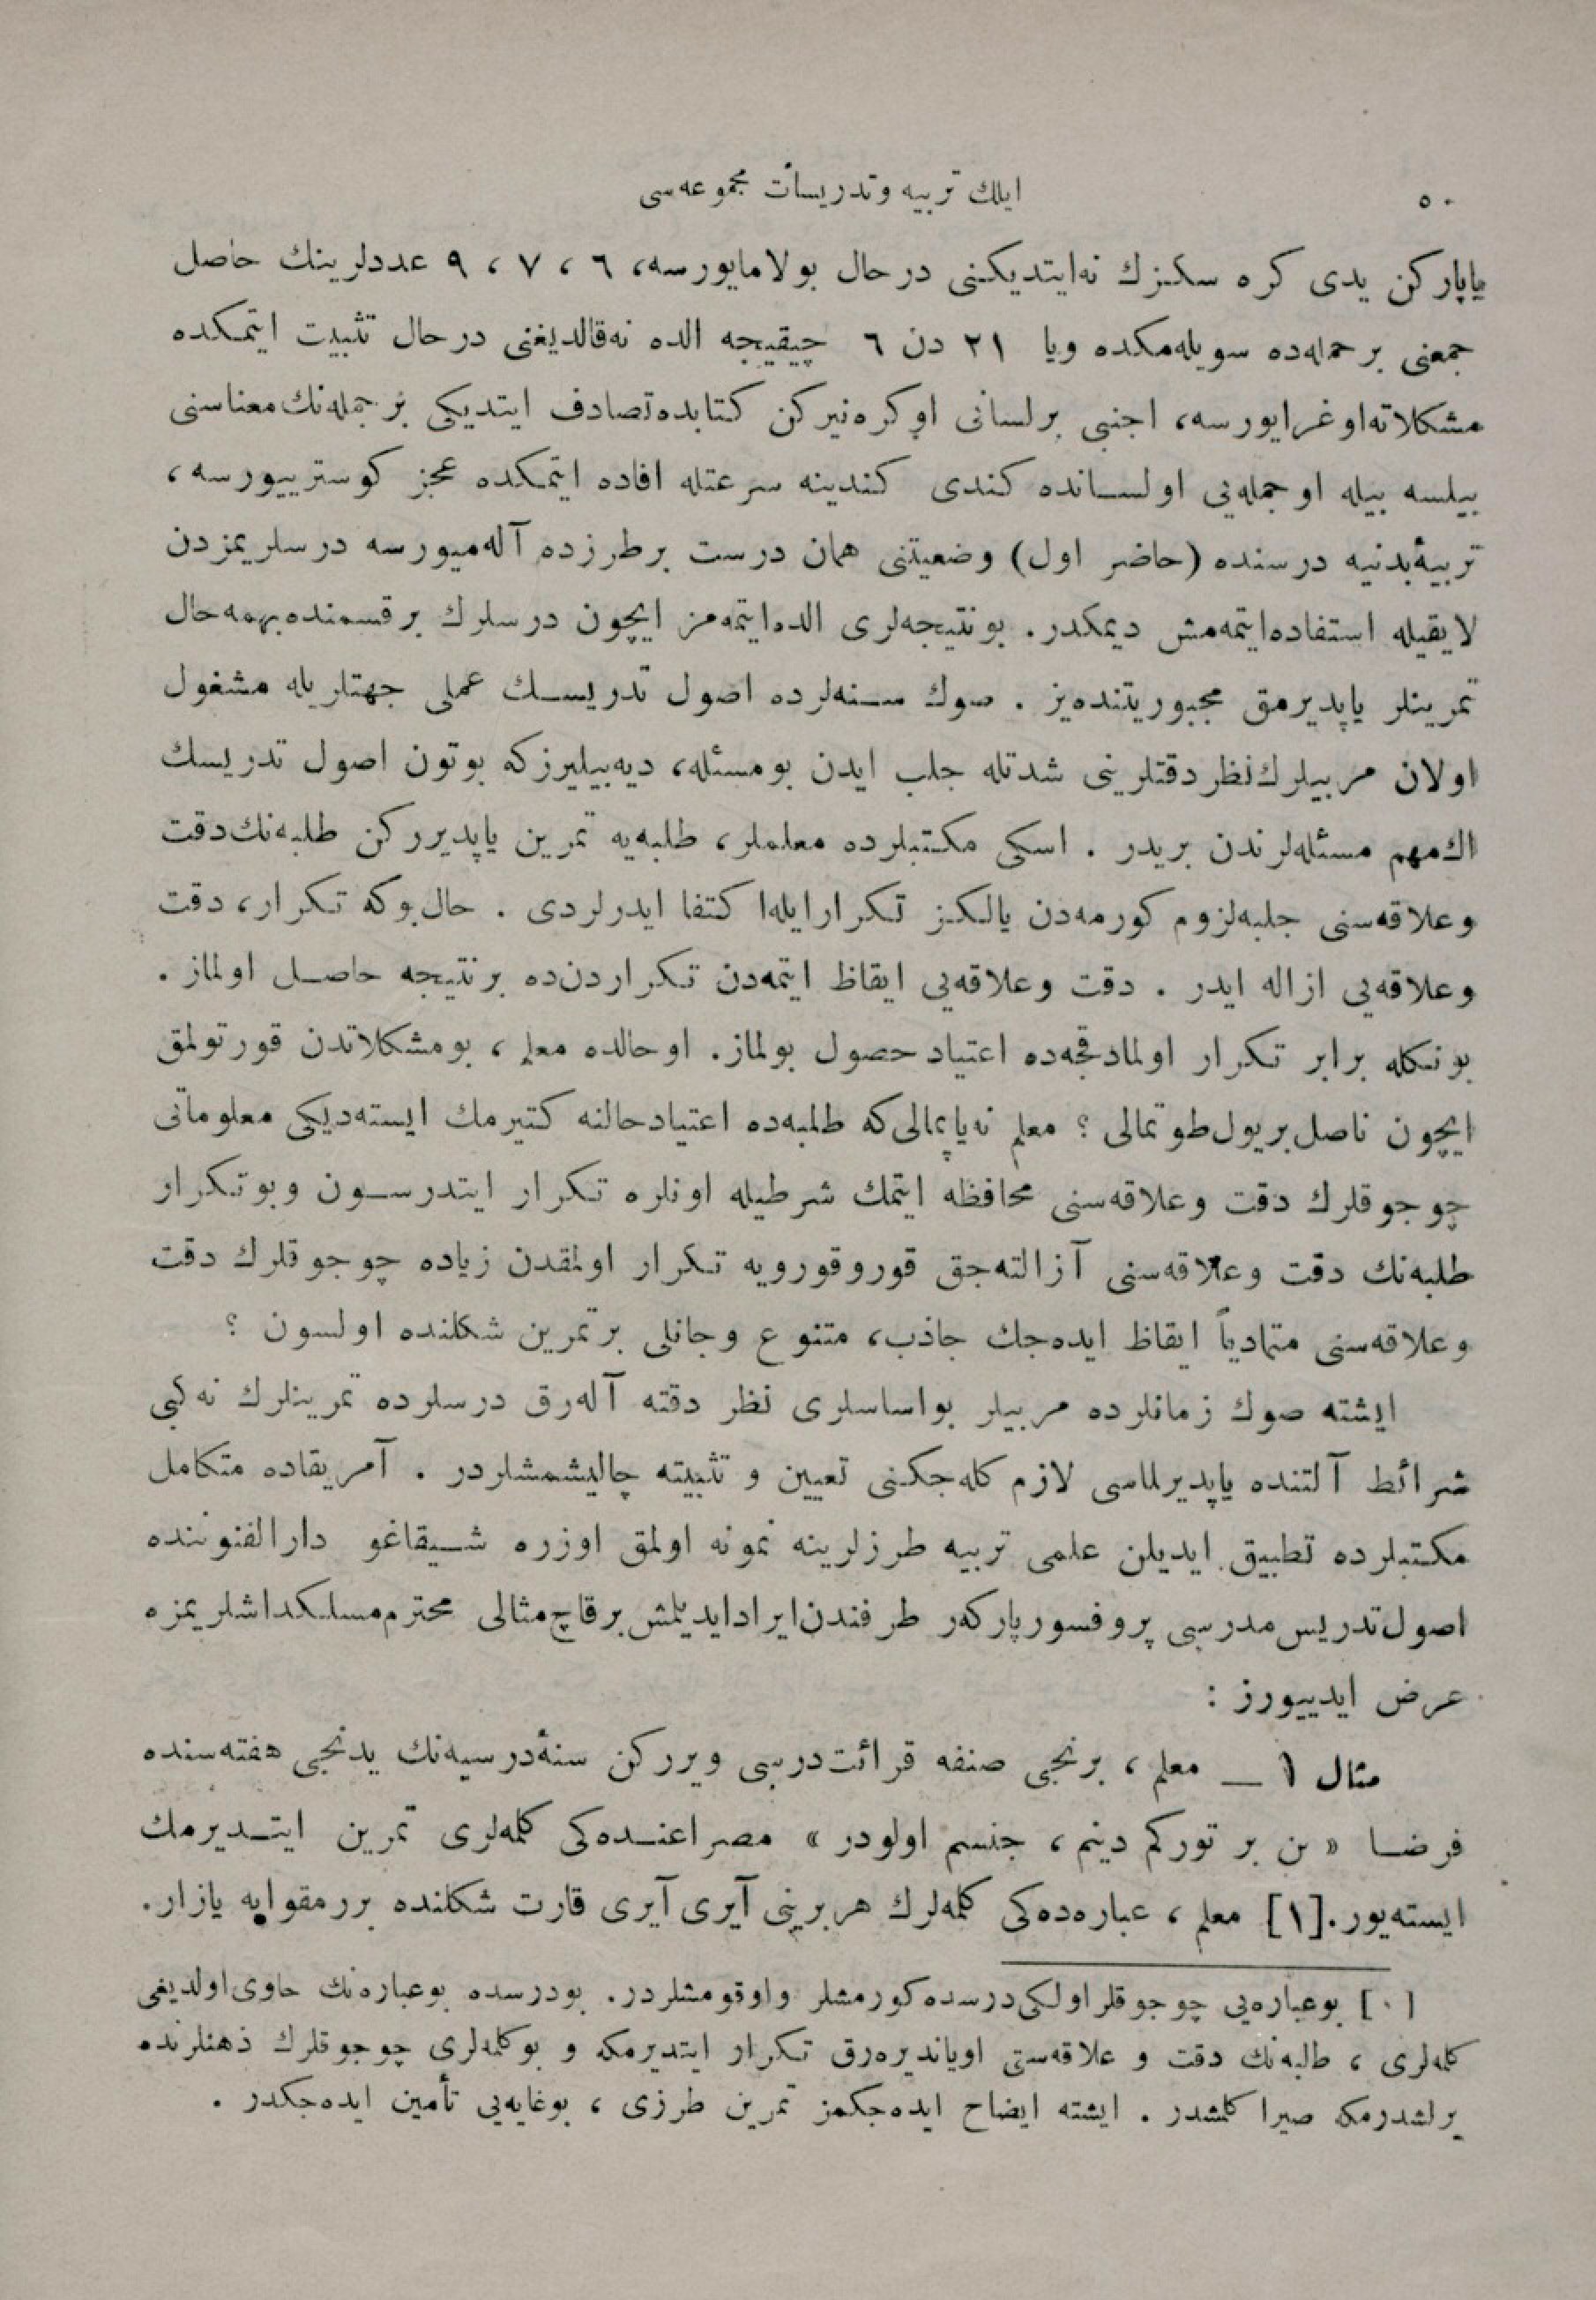 ٥٠
ایلك تربیه وتدریسات مجموعه‌سی
یاپارکن یدی کره سکزك نه‌ایتدیکنی درحال بولامایورسه، ٦ ، ٧ ، ٩ عددلرینك حاصل
جمعنی برحمله‌ده سویله‌مکده ویا ٢١ دن ٦ چیقیجه الده نه‌قالدیغنی درحال تثبیت ایتمکده
مشکلاته‌اوغرایورسه، اجنبی برلسانی اوکره‌نیرکن کتابده‌تصادف ایتدیکی برجمله‌نك‌معناسنی
بیلسه بیله اوجمله‌یی اولسانده کندی کندینه سرعتله افاده ایتمکده عجز کوسترییورسه،
تربیۀبدنیه درسنده (حاضر اول) وضعیتنی همان درست برطرزده آله‌میورسه درسلریمزدن
لایقیله استفاده‌ایتمه‌مش دیمکدر. بونتیجه‌لری الده‌ایتمه‌مز ایچون درسلرك برقسمنده‌بهمه‌حال
تمرینلر یاپدیرمق مجبوریتنده‌یز . صوك سنه‌لرده اصول تدریسك عملی جهتلریله مشغول
اولان مربیلرك‌نظردقتلرینی شدتله جلب ایدن بومسئله، دیه‌بیلیرزکه بوتون اصول تدریسك
اك‌مهم مسئله‌لرندن بریدر . اسکی مکتبلرده معلملر، طلبه‌یه تمرین یاپدیررکن طلبه‌نك‌دقت
وعلاقه‌سنی جلبه‌لزوم کورمه‌دن یالکز تکرارایله‌اکتفا ایدرلردی . حال‌بوکه تکرار، دقت
وعلاقه‌یی ازاله ایدر . دقت وعلاقه‌یی ایقاظ ایتمه‌دن تکراردن‌ده برنتیجه حاصل اولماز .
بونکله برابر تکرار اولمادقجه‌ده اعتیاد حصول بولماز. اوحالده معلم ، بومشکلاتدن قورتولمق
ایچون ناصل‌بریول‌طوتمالی ؟ معلم نه‌یاپمالی‌که طلبه‌ده اعتیادحالنه کتیرمك ایسته‌دیکی معلوماتی
چوجوقلرك دقت وعلاقه‌سنی محافظه ایتمك شرطیله اونلره تکرار ایتدرسون وبوتکرار
طلبه‌نك دقت وعلاقه‌سنی آزالته‌جق قوروقورویه تکرار اولمقدن زیاده چوجوقلرك دقت
وعلاقه‌سنی متمادیاً ایقاظ ایده‌جك جاذب، متنوع وجانلی برتمرین شکلنده اولسون ؟
ایشته صوك زمانلرده مربیلر بواساسلری نظر دقته آله‌رق درسلرده تمرینلرك نه‌کبی
شرائط آلتنده یاپدیرلماسی لازم کله‌جکنی تعیین و تثبیته چالیشمشلردر . آمریقاده متکامل
مکتبلرده تطبیق ایدیلن علمی تربیه طرزلرینه نمونه اولمق اوزره شیقاغو دارالفنوننده
اصول‌تدریس‌مدرسی پروفسورپارکه‌ر طرفندن‌ایرادایدیلمش‌برقاچ‌مثالی محترم‌مسلکداشلریمزه
عرض ایدییورز :
مثال ١ — معلم ، برنجی صنفه قرائت‌درسی ویررکن سنۀدرسیه‌نك یدنجی هفته‌سنده
فرضا « بن بر تورکم دینم ، جنسم اولودر » مصراعنده‌کی کلمه‌لری تمرین ایتدیرمك
ایسته‌یور.[١] معلم ، عباره‌ده‌کی کلمه‌لرك هربرینی آیری‌آیری قارت شکلنده بررمقوایه یازار.
[٠] بوعباره‌یی چوجوقلر اولکی‌درسده‌کورمشلر واوقومشلردر. بودرسده بوعباره‌نك حاوی‌اولدیغی
کلمه‌لری ، طلبه‌نك دقت و علاقه‌سنی اویاندیره‌رق تکرار ایتدیرمکه و بوکلمه‌لری چوجوقلرك ذهنلرنده
یرلشدرمکه صیرا کلمشدر . ایشته ایضاح ایده‌جکمز تمرین طرزی ، بوغایه‌یی تأمین ایده‌جکدر .